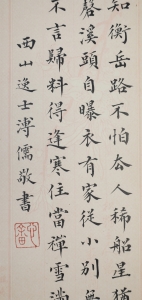 知衡岳路不怕去人稀船星猶
磬溪頭自曝衣有家從小別無
不言歸料得逢寒住當禪雪滿
西山逸士溥儒敬書